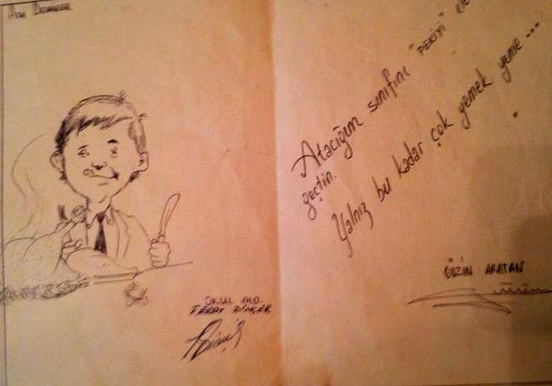 Atacığım sınıfını "PEKİYİ" ile
geçtin.
Yalnız bu kadar çok yemek yeme...
GÜZİN ARATAN
OKUL MD.